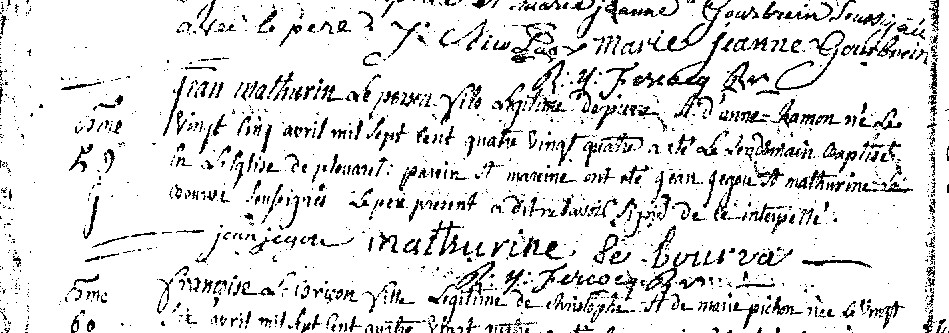 marie jeanne Gourbrein soussigné
avec le pere J: Marie Jeanne Gourbrein
R. Y. Fercocq Rr
Jean Mathurin Le peron fils Legitime de pierre et d'anne Ramon né Le
Bme vingt cinq avril mil sept cent quatre vingt quatre a eté Le Lendemain Baptisé
59 En L'eglise de plouaret: parein et mareine ont eté jean jegou et mathurine Le
Bourva soussignés Le pere present a dit ne savoir signer de ce interpellé.
jean jegou mathurine le bourva
R. Y. Fercocq Rr
Bme françoise Le fille Legitime de christophe et de marie pichon née Le vingt
60 Six avril mil sept cent quatre vingt quatre